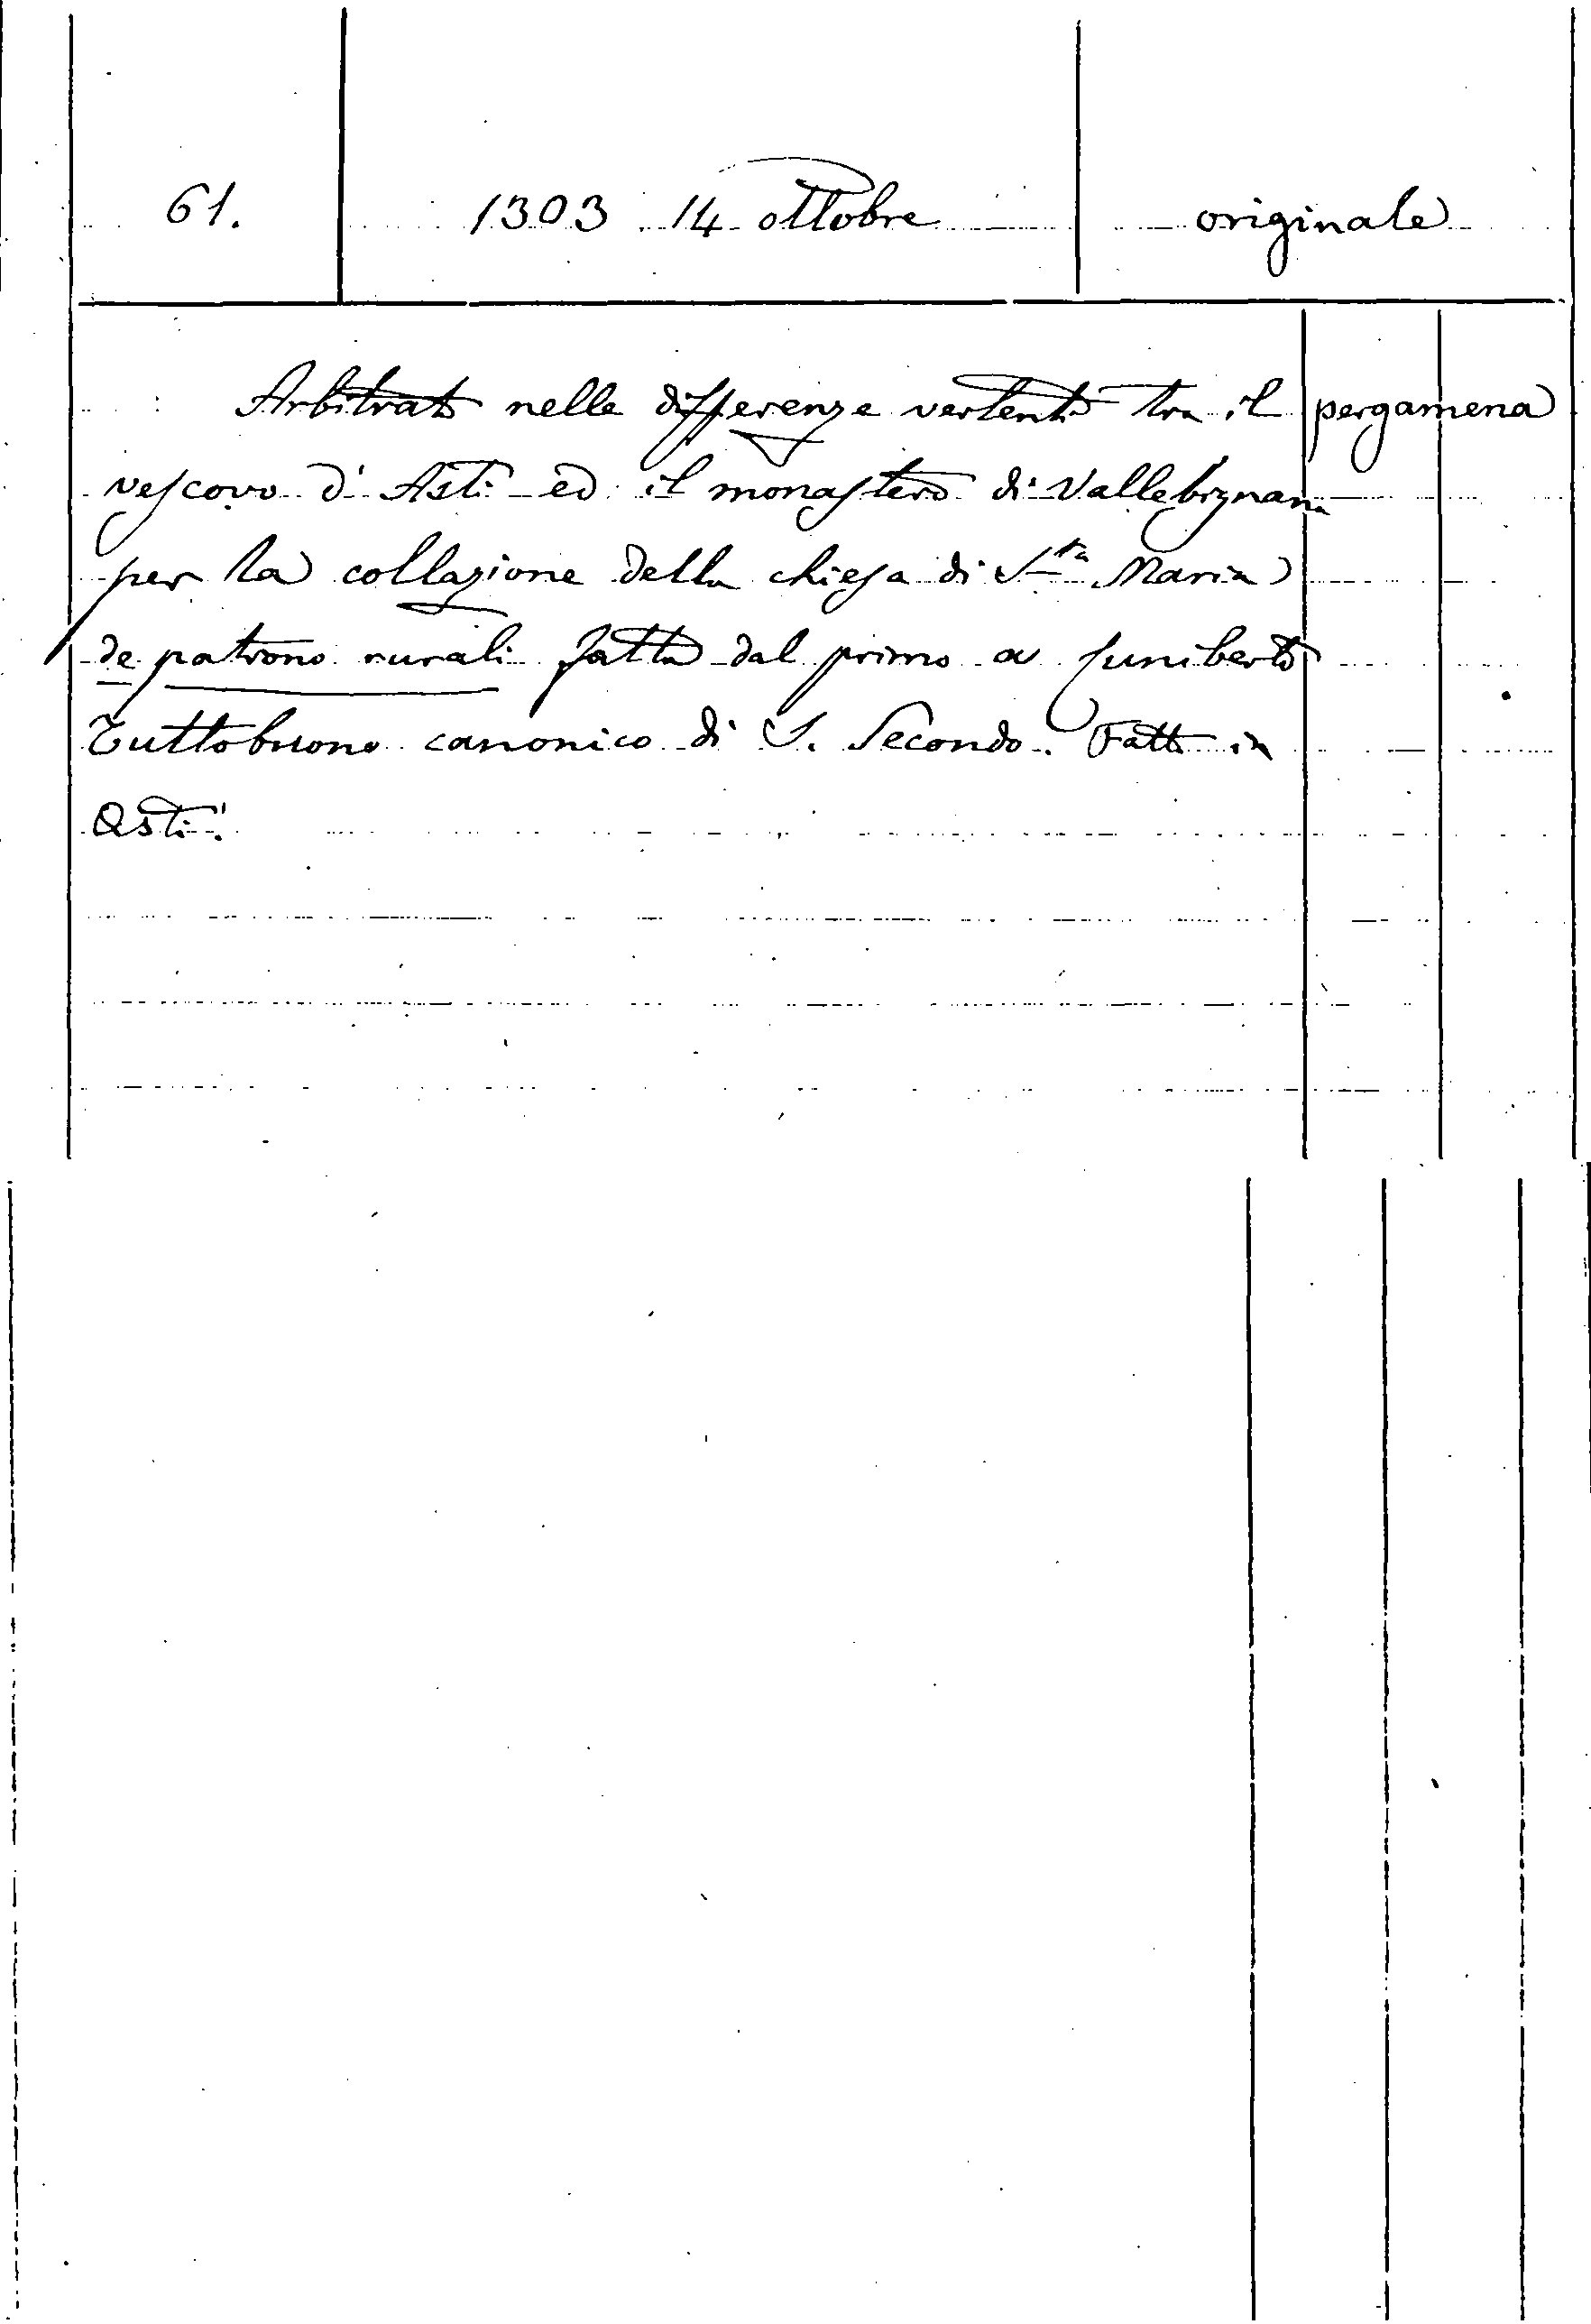 61. 1303 14 ottobre originale
Arbitrato nelle differenze vertenti tra il pergamena
vescovo d'Asti ed il monastero di Vallebrignana
per la collazione della chiesa di S.ta Maria
de patrono rurali fatta dal primo a Cuniberto
Tuttobuono canonico di S. Secondo. Fatto in
Asti.